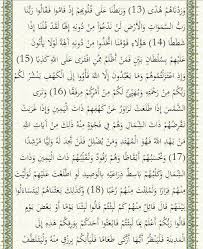 وَزِدْنَاهُمْ هُدًى (13) وَرَبَطْنَا عَلَى قُلُوبِهِمْ إِذْ قَامُوا فَقَالُوا رَبُّنَا
رَبُّ السَّمَاوَاتِ وَالْأَرْضِ لَنْ نَدْعُوَ مِنْ دُونِهِ إِلَهًا لَقَدْ قُلْنَا إِذًا
شَطَطًا (14) هَؤُلَاءِ قَوْمُنَا اتَّخَذُوا مِنْ دُونِهِ آلِهَةً لَوْلَا يَأْتُونَ
عَلَيْهِمْ بِسُلْطَانٍ بَيِّنٍ فَمَنْ أَظْلَمُ مِمَّنِ افْتَرَى عَلَى اللَّهِ كَذِبًا (15)
وَإِذِ اعْتَزَلْتُمُوهُمْ وَمَا يَعْبُدُونَ إِلَّا اللَّهَ فَأْوُوا إِلَى الْكَهْفِ يَنْشُرْ لَكُمْ
رَبُّكُمْ مِنْ رَحْمَتِهِ وَيُهَيِّئْ لَكُمْ مِنْ أَمْرِكُمْ مِرْفَقًا (16) وَتَرَى
الشَّمْسَ إِذَا طَلَعَتْ تَزَاوَرُ عَنْ كَهْفِهِمْ ذَاتَ الْيَمِينِ وَإِذَا غَرَبَتْ
تَقْرِضُهُمْ ذَاتَ الشِّمَالِ وَهُمْ فِي فَجْوَةٍ مِنْهُ ذَلِكَ مِنْ آيَاتِ اللَّهِ
مَنْ يَهْدِ اللَّهُ فَهُوَ الْمُهْتَدِ وَمَنْ يُضْلِلْ فَلَنْ تَجِدَ لَهُ وَلِيًّا مُرْشِدًا
(17) وَتَحْسَبُهُمْ أَيْقَاظًا وَهُمْ رُقُودٌ وَنُقَلِّبُهُمْ ذَاتَ الْيَمِينِ
وَذَاتَ الشِّمَالِ وَكَلْبُهُمْ بَاسِطٌ ذِرَاعَيْهِ بِالْوَصِيدِ لَوِ اطَّلَعْتَ عَلَيْهِمْ لَوَلَّيْتَ
مِنْهُمْ فِرَارًا وَلَمُلِئْتَ مِنْهُمْ رُعْبًا (18) وَكَذَلِكَ بَعَثْنَاهُمْ لِيَتَسَاءَلُوا
بَيْنَهُمْ قَالَ قَائِلٌ مِنْهُمْ كَمْ لَبِثْتُمْ قَالُوا لَبِثْنَا يَوْمًا أَوْ بَعْضَ يَوْمٍ
قَالُوا رَبُّكُمْ أَعْلَمُ بِمَا لَبِثْتُمْ فَابْعَثُوا أَحَدَكُمْ بِوَرِقِكُمْ هَذِهِ إِلَى
الْمَدِينَةِ فَلْيَنْظُرْ أَيُّهَا أَزْكَى طَعَامًا فَلْيَأْتِكُمْ بِرِزْقٍ مِنْهُ وَلْيَتَلَطَّفْ